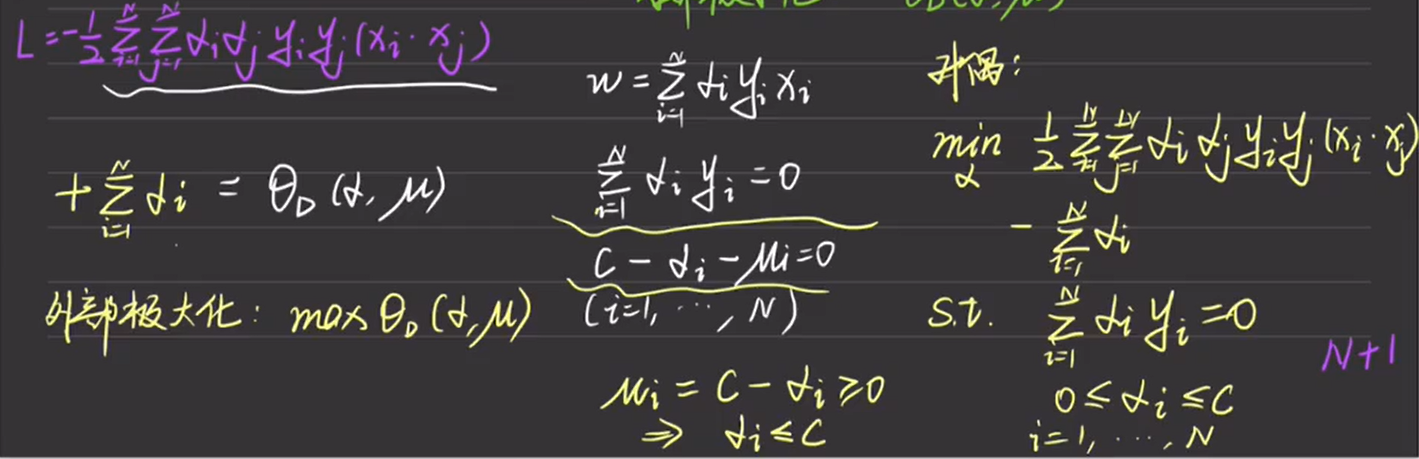 L = -\frac{1}{2} \sum_{i=1}^{N} \sum_{j=1}^{N} α_i α_j y_i y_j (x_i · x_j)
+ \sum_{i=1}^{N} α_i = θ_D (α, μ)
外部极大化: max θ_D (α, μ)
w = \sum_{i=1}^{N} α_i y_i x_i
\sum_{i=1}^{N} α_i y_i = 0
C - α_i - μ_i = 0
(i=1, ⋯, N)
μ_i = C - α_i ≥ 0
⇒ α_i ≤ C
对偶:
min_α \frac{1}{2} \sum_{i=1}^{N} \sum_{j=1}^{N} α_i α_j y_i y_j (x_i · x_j)
- \sum_{i=1}^{N} α_i
s.t. \sum_{i=1}^{N} α_i y_i = 0
0 ≤ α_i ≤ C
i=1, ⋯, N
N+1